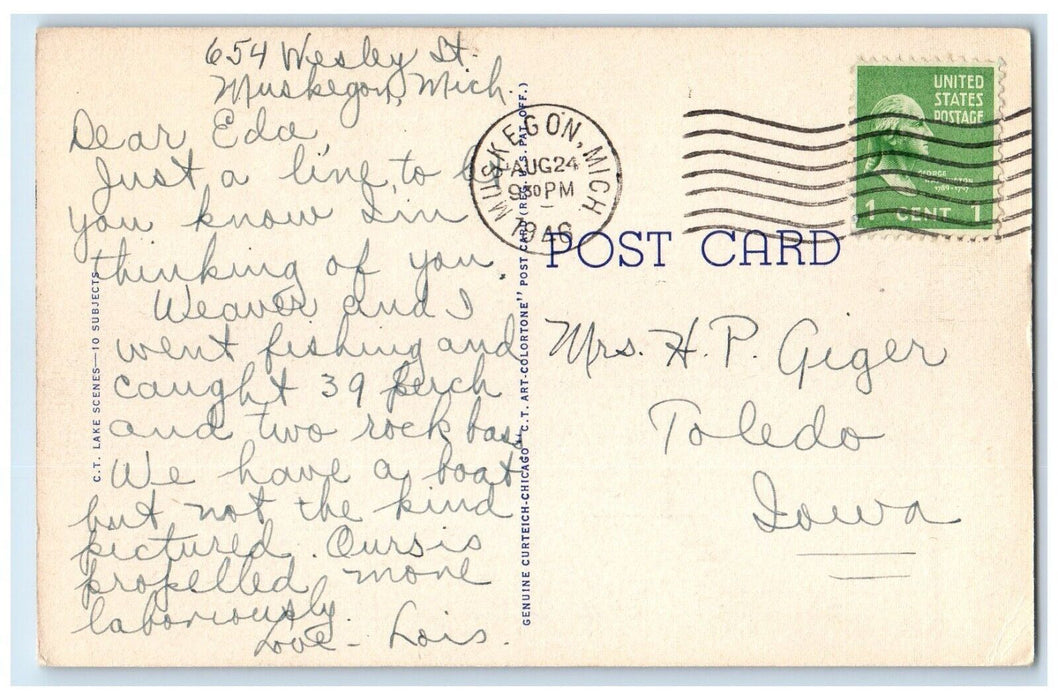 654 Wesley St.
Muskegon, Mich.
Dear Eda,
Just a line, to let
you know I'm
thinking of you.
Weaver and I
went fishing and
caught 39 perch
and two rock bass.
We have a boat
but not the kind
pictured. Ours is
propelled more
laboriously.
Love - Lois.
C.T. LAKE SCENES—10 SUBJECTS
GENUINE CURTEICH-CHICAGO "C.T. ART-COLORTONE" POST CARD (REG. U.S. PAT. OFF.)
MUSKEGON, MICH.
AUG 24
9 30 PM
1946
UNITED
STATES
POSTAGE
GEORGE
WASHINGTON
1789-1797
1 CENT 1
POST CARD
Mrs. H. P. Giger
Toledo
Iowa